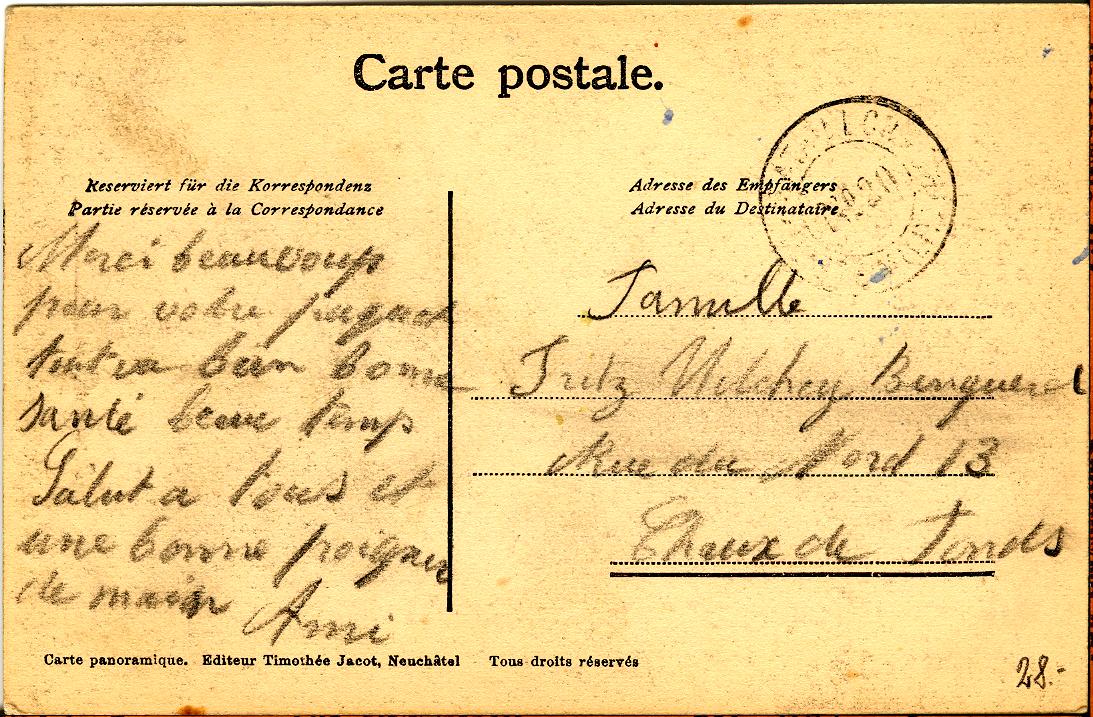 Carte postale.
Reserviert für die Korrespondenz
Partie réservée à la Correspondance
Merci beaucoup
pour votre paquet
tout va bien bonne
santé beau temps
Salut a tous et
une bonne poignée
de main Ami
Adresse des Empfängers
Adresse du Destinataire
Famille
Fritz Benguerel
Rue du Nord 13
Chaux de Fonds
Carte panoramique. Editeur Timothée Jacot, Neuchâtel Tous droits réservés
28.-